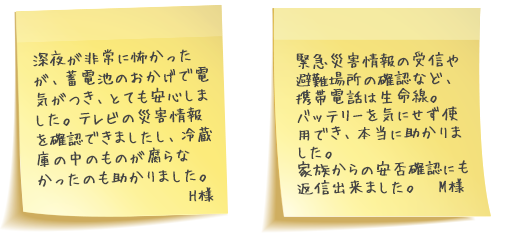 深夜が非常に怖かった
が、蓄電池のおかげで電
気がつき、とても安心しま
した。テレビの災害情報
を確認できましたし、冷蔵
庫の中のものが腐らな
かったのも助かりました。
H様
緊急災害情報の受信や
避難場所の確認など、
携帯電話は生命線。
バッテリーを気にせず使
用でき、本当に助かりま
した。
家族からの安否確認にも
返信出来ました。　M様